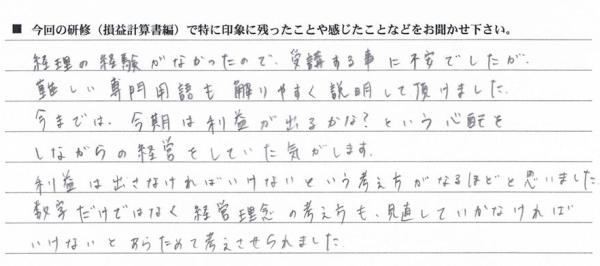 ■ 今回の研修（損益計算書編）で特に印象に残ったことや感じたことなどをお聞かせ下さい。
経理の経験がなかったので、受講する事に不安でしたが、
難しい専門用語も解りやすく説明して頂けました。
今までは、今期は利益が出るかな？という心配を
しながらの経営をしていた気がします。
利益は出さなければいけないという考え方がなるほどと思いました。
数字だけではなく経営理念の考え方も、見直していかなければ
いけないとあらためて考えさせられました。